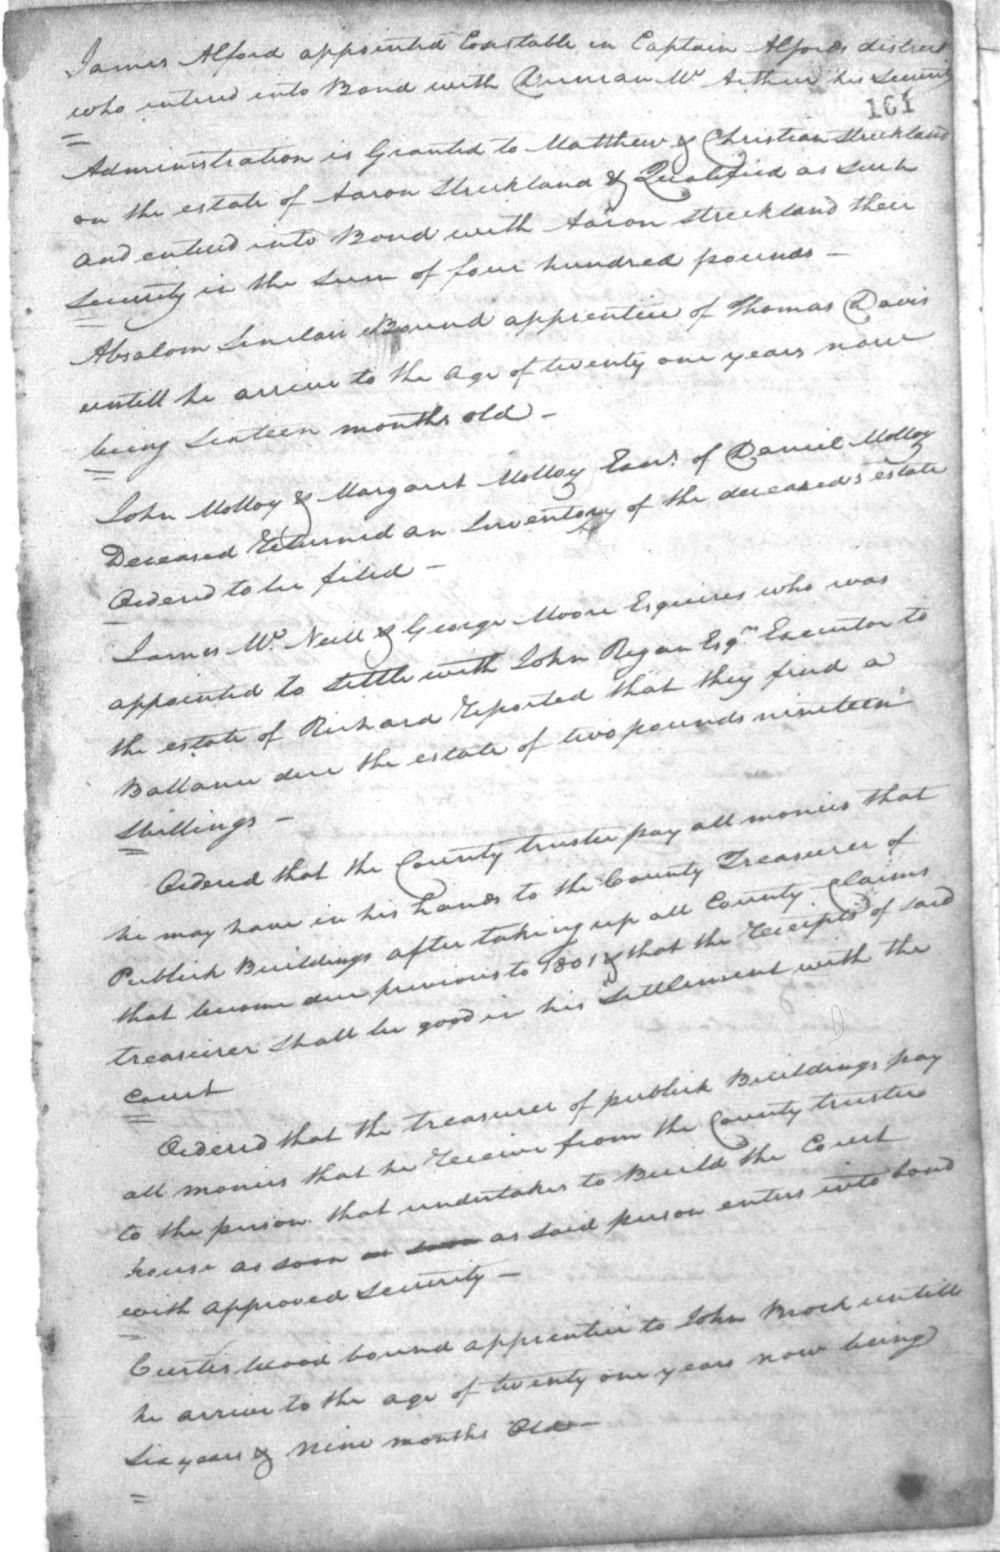 James Alford appointed Constable in Captain Alfords district
who entered into Bond with Duncan Mc Arthur his Security
161
Administration is Granted to Matthew & Christian Strickland
on the estate of Aaron Strickland & Qualified as such
and entered into Bond with Aaron Strickland their
Security in the sum of four hundred pounds –
Absalom Sinclair Bound apprentice of Thomas Davis
untill he arrive to the age of twenty one years now
being Sixteen months old –
John McLloy & Margaret McLloy Exrs. of Daniel McLloy
Deceased returned an Inventory of the deceased's estate
Ordered to be filed –
James Mc Neill & George Moore Esquires who was
appointed to settle with John Regan Esqr Executor to
the estate of Richard reported that they find a
Ballance due the estate of two pounds nineteen
Shillings –
Ordered that the County trustee pay all monies that
he may have in his hands to the County Treasurer of
Publick Buildings after taking up all County claims
that become due previous to 1801 & that the receipts of said
treasurer shall be good in his settlement with the
Court
Ordered that the treasurer of publick Buildings pay
all monies that he receive from the County trustee
to the person that undertakes to Build the Court
house as soon as soon as said person enters into bond
with approved security –
Curtis Wood bound apprentice to John Brock untill
he arrive to the age of twenty one years now being
Six years & nine months Old –